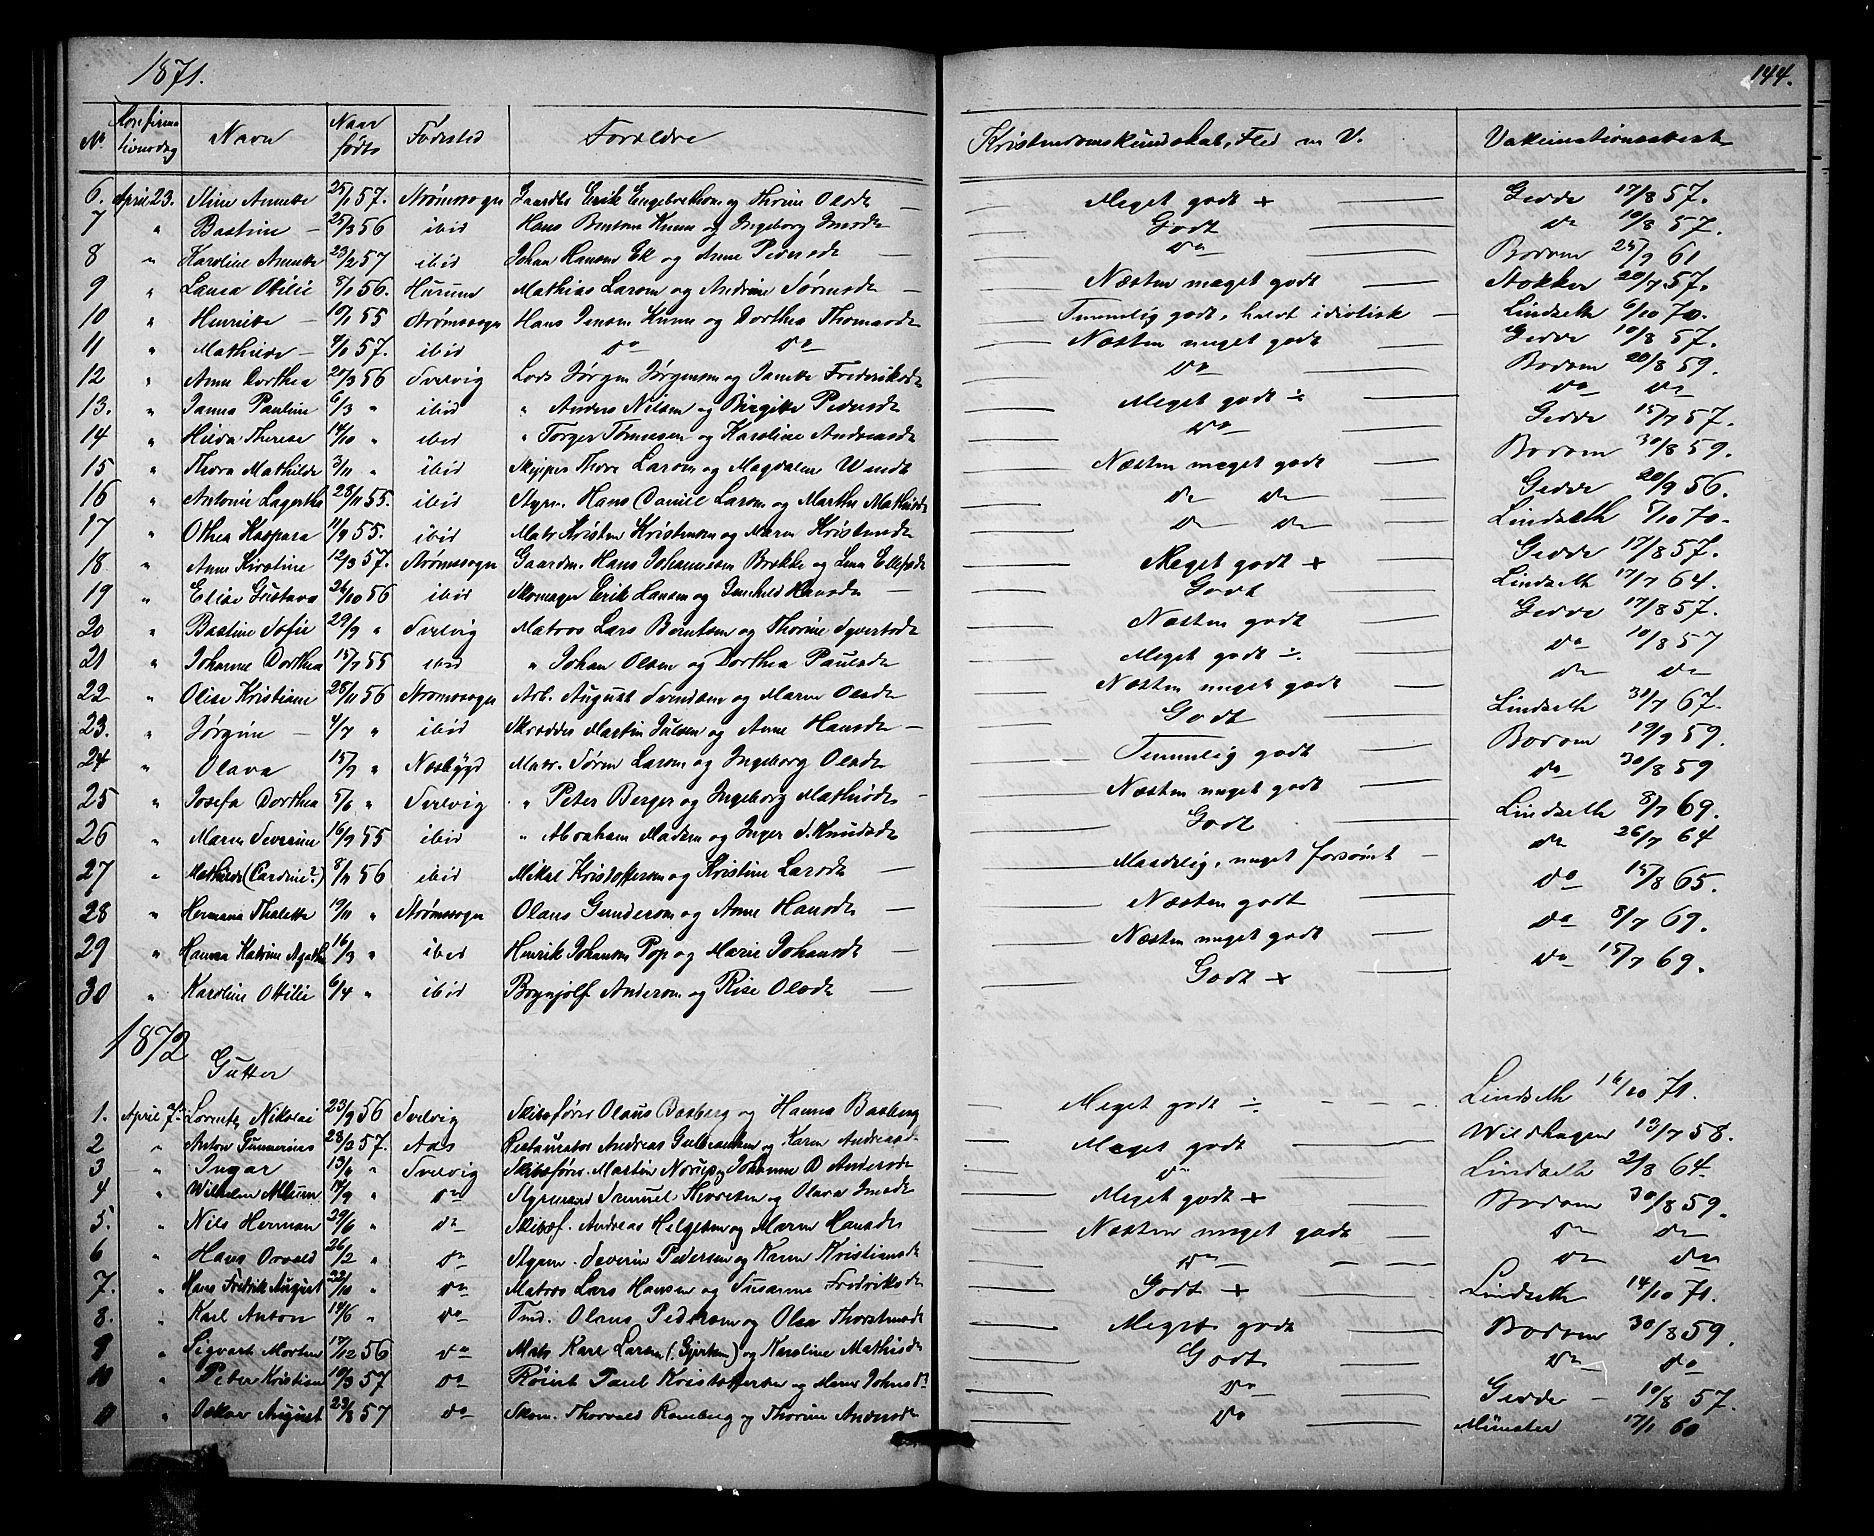 1871.
144.
No Konfirmationsdag Navn Naar født Fødested Forældre Kristendomskundskab, Flid m V. Vakcinationsattest
6. April 23. Stine Annette 25/1 57. Strømssogn Gaardbr Erik Engebrethsen og Thorine Olsdt Meget godt + Gedde 17/8 57.
7 " Bastine 25/3 56 ibid Hans Berntsen Kunne og Ingeborg Godt do 10/8 57.
8 " Karoline Annette 23/2 57 ibid Johan Hansen Ek og Anne Pedersdt do Bodom 25/9 61
9 " Laura Otilie 8/1 56. Hurum Mathias Larsen og Andrine Sørensdt Næsten meget godt Stokker 20/7 57.
10 " Henrikke 10/1 55 Strømssogn Hans Jensen Kunne og Dorthea Thomasdt Temmelig godt, halvt idiotisk Lindseth 6/10 70.
11 " Mathilde 9/10 57. ibid do do Næsten meget godt Gedde 10/8 57.
12 " Anne Dorthea 20/3 56 Svelvig Lods Jørgen Jørgensen og Frederiksdt do Bodom 20/8 59.
13. " Janna Pauline 6/3 " ibid " Anders Nilsen og Birgitte Pedersdt Meget godt ÷ do do
14 " Hilda Therese 14/10 " ibid " Torger Tønnesen og Karoline Andreasdt do Gedde 15/7 57.
15 " Thora Mathilde 3/11 " ibid Skipper Thore Larsen og Magdalene Wandt Næsten meget godt Bodom 30/8 59.
16 " Antonie Lagertha 28/11 55. ibid Styrm. Hans Daniel Larsen og Marthe Mathisdt do do Gedde 20/9 56.
17 " Othea Kaspara 11/9 55. ibid Matr Kristen Kristensen og Maren Kristensdt do do Lindseth 5/10 70.
18 " Anne Kirstine 12/3 57. Strømssogn Gaardm. Hans Johannesen Brække og Lene Ellefsdt Meget godt + Gedde 17/8 57.
19 " Elise Gustava 26/10 56 ibid Skomager Erik Hansen og Gunhild Hansdt Godt Lindseth 17/7 64.
20 " Bastine Sofie 29/9 " Svelvig Matros Lars Berntsen og Thorine Syvertsdt Næsten godt Gedde 17/8 57.
21 " Johanne Dorthea 15/7 55 ibid " Johan Olsen og Dorthea Paulsdt Meget godt ÷. do 10/8 57
22 " Olise Kristiane 28/11 56 Strømssogn Arb. August Svendsen og Maren Olsdt Næsten meget godt do do
23. " Jørgine 4/7 " ibid Skrædder Martin Julsen og Anne Hansdt Godt Lindseth 31/7 67.
24 " Olava 15/7 " Næsbygd Matr. Søren Larsen og Ingeborg Olsdt Temmelig godt Bodom 19/9 59.
25 " Josefa Dorthea 5/6 " Svelvig " Peter Berger og Ingeborg Mathisdt Næsten meget godt do 30/8 59
26 " Maren Severine 16/9 55 ibid " Abraham Madsen og Inger S. Knudsdt Godt Lindseth 8/7 69.
27 " Mathilde (Cardine?) 8/11 56 ibid Mikal Kristoffersen og Kristine Larsdt Maadelig, meget forsømt do 26/7 64
28 " Hermana Thalette 19/11 " Strømssogn Olaus Gundersen og Anne Hansdt Næsten godt do 15/8 65.
29 " Hanna Katrine Agathe 16/3 " ibid Henrik Johansen Pop og Marie Johansdt Næsten meget godt do 8/7 69.
30 " Karoline Otilie 6/4 " ibid Brynjolf Andersen og Rise Olsdt Godt + do 15/7 69.
1872
Gutter
1. April 7. Lorentz Nikolai 23/9 56 Svelvig Skibsfører Olaus Basberg og Hanna Basberg Meget godt ÷ Lindseth 16/10 71.
2 " Anton Gunnerius 28/2 57. Aas Restauratør Andreas Gulbransen og Karen Andreasdt Meget godt Wildhagen 13/7 58.
3 " Ingar 13/6 " Svelvig Skibsfører. Martin Norup og Johanne D Andersdt do Lindseth 2/8 64.
4 " Wilhelm 14/9 " do Styrmand Samuel og Olava Meget godt + Bodom 30/8 59.
5. " Nils Herman 29/6 " do Skibsf. Andreas Helgesen og Maren Hansdt Næsten meget godt do do
6 " Hans Osvald 26/2 " do Styrm. Severin Pedersen og Karen Kristiansdt do do do
7. " Hans Fredrik August 22/10 " do Matros Lars Hansen og Susanne Fredriksdt Godt + Lindseth 14/10 71.
8. " Karl Anton 19/6 " do Tmd. Olaus Pedersen og Olea Thorstensdt Meget godt Bodom 30/8 59.
9 " Sigvart Morten 17/12 56 do Matr Karl Larsen (Gjertsen) og Karoline Mathisdt Godt do do
10 " Peter Kristian 10/3 57 do Paul Kristoffersen og Maren Johnsdt do Gedde 10/8 57.
11 " Oskar August 23/8 57 do Skom. Thorvald Ramberg og Thorine Andersdt do Münster 17/1 60